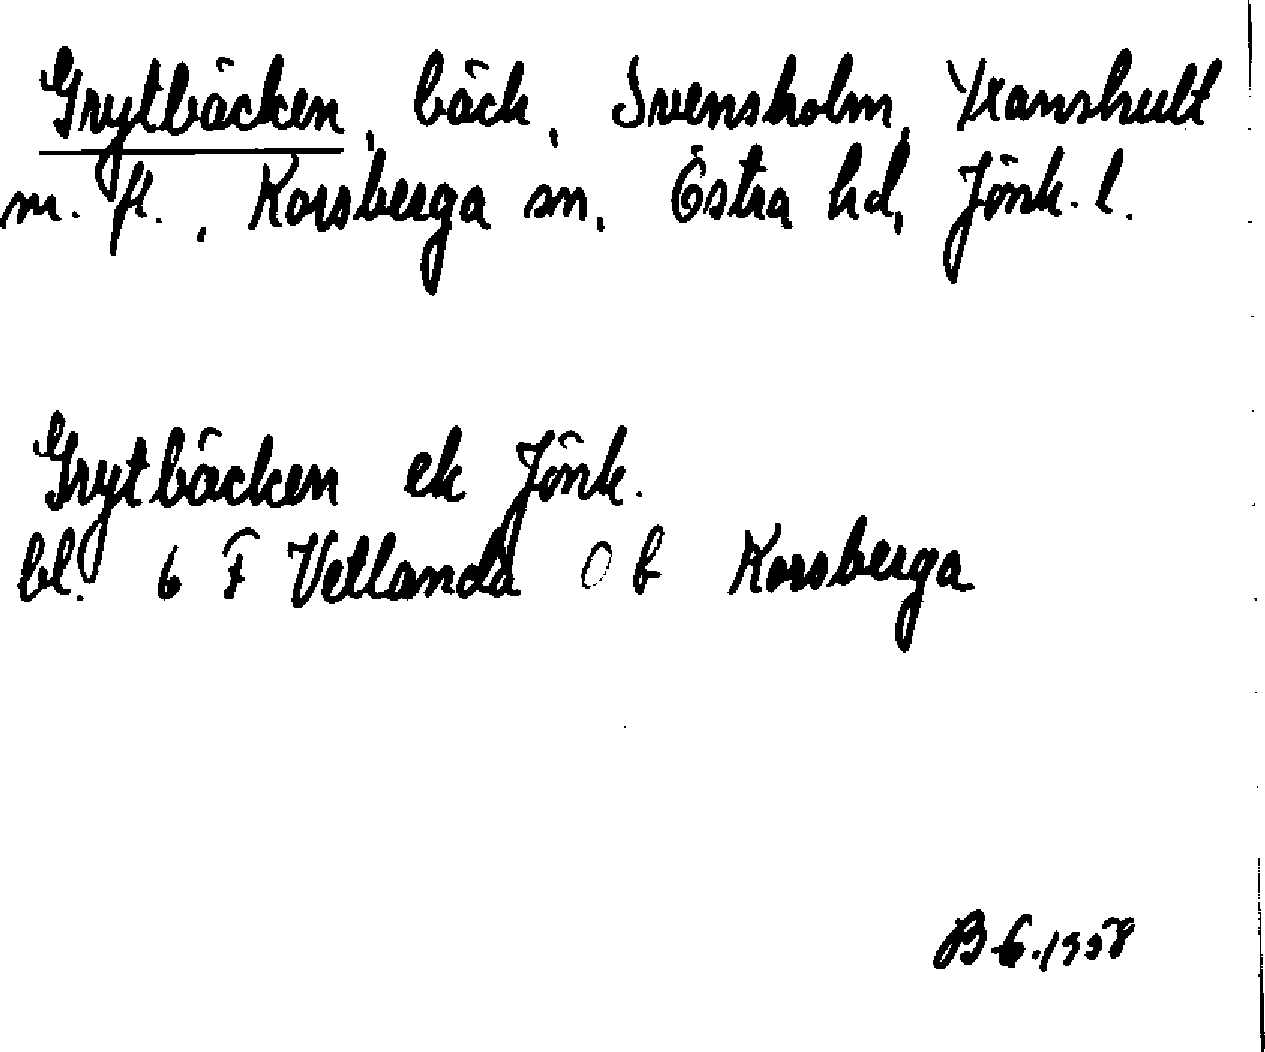 Grytbäcken, bäck, Svensholm, Yxanshult
m. fl., Korsberga sn, Östra hd, Jönk. l.
Grytbäcken ek Jönk.
bl. 6 F Vetlanda 0 b Korsberga
1958